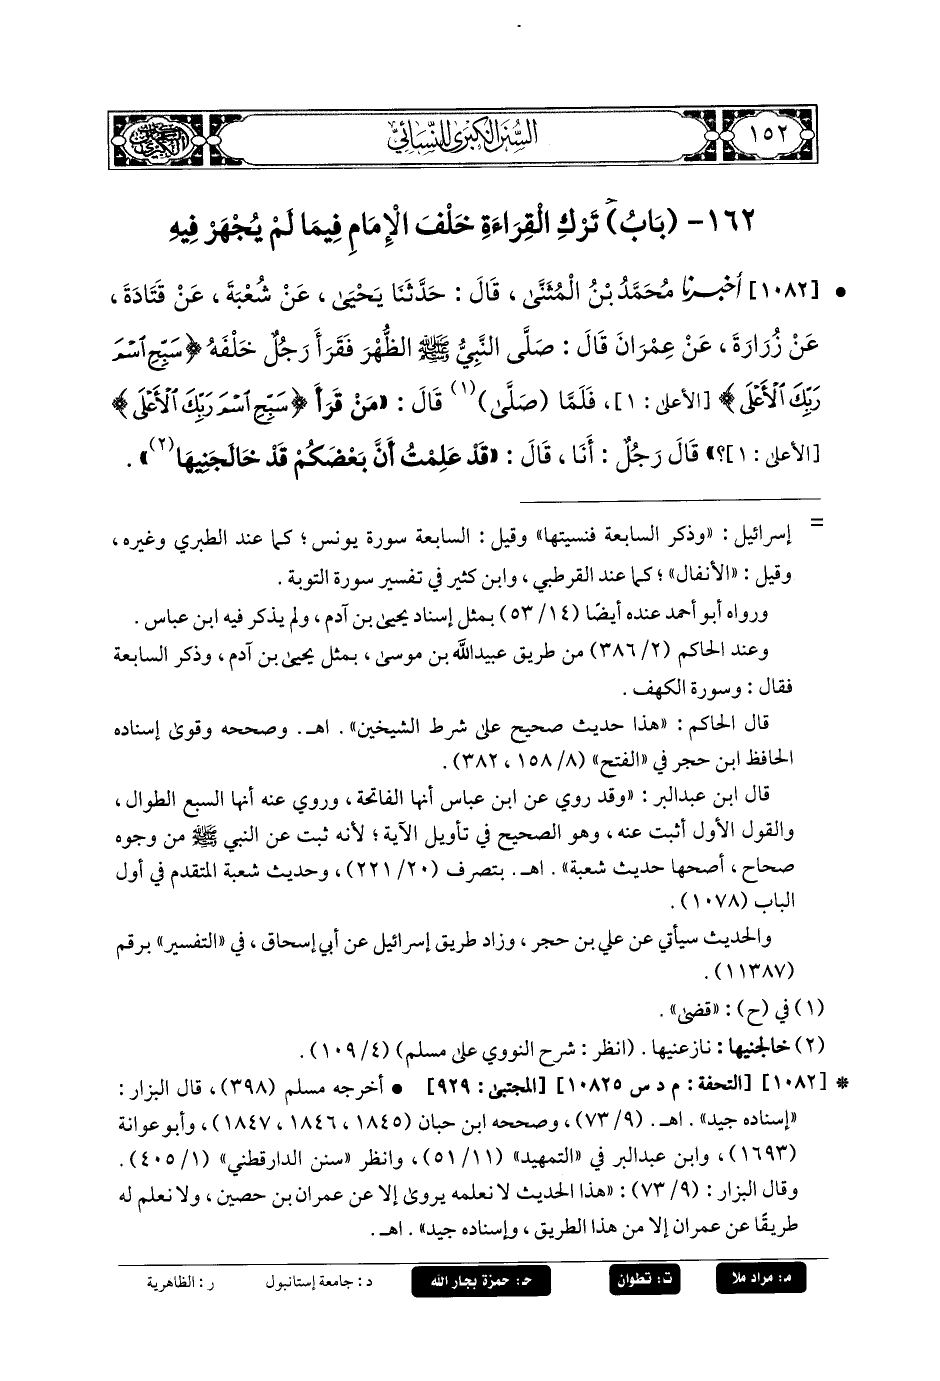 ١٥٢
السنن الكبرى للنسائي
١٦٢- (بَابُ) تَرْكِ الْقِرَاءَةِ خَلْفَ الْإِمَامِ فِيمَا لَمْ يُجْهَرْ فِيهِ
• [١٠٨٢] أخبرنا مُحَمَّدُ بْنُ الْمُثَنَّىٰ ، قَالَ : حَدَّثَنَا يَحْيَىٰ ، عَنْ شُعْبَةَ ، عَنْ قَتَادَةَ ،
عَنْ زُرَارَةَ ، عَنْ عِمْرَانَ قَالَ : صَلَّى النَّبِيُّ ﷺ الظُّهْرَ فَقَرَأَ رَجُلٌ خَلْفَهُ ﴿سَبِّحِ ٱسْمَ
رَبِّكَ ٱلْأَعْلَى﴾ [الأعلى : ١]، فَلَمَّا (صَلَّىٰ)(١) قَالَ : «مَنْ قَرَأَ ﴿سَبِّحِ ٱسْمَ رَبِّكَ ٱلْأَعْلَى﴾
[الأعلى : ١]؟» قَالَ رَجُلٌ : أَنَا ، قَالَ : «قَدْ عَلِمْتُ أَنَّ بَعْضَكُمْ قَدْ خَالَجَنِيهَا(٢)» .
= إسرائيل : «وذكر السابعة فنسيتها» وقيل : السابعة سورة يونس ؛ كما عند الطبري وغيره ،
وقيل : «الأنفال» ؛ كما عند القرطبي ، وابن كثير في تفسير سورة التوبة .
ورواه أبو أحمد عنده أيضًا (١٤/ ٥٣) بمثل إسناد يحيىٰ بن آدم ، ولم يذكر فيه ابن عباس .
وعند الحاكم (٢/ ٣٨٦) من طريق عبيدالله بن موسىٰ ، بمثل يحيىٰ بن آدم ، وذكر السابعة
فقال : وسورة الكهف .
قال الحاكم : «هذا حديث صحيح على شرط الشيخين» . اهـ. وصححه وقوىٰ إسناده
الحافظ ابن حجر في «الفتح» (٨/ ١٥٨ ، ٣٨٢) .
قال ابن عبدالبر : «وقد روي عن ابن عباس أنها الفاتحة ، وروي عنه أنها السبع الطوال ،
والقول الأول أثبت عنه ، وهو الصحيح في تأويل الآية ؛ لأنه ثبت عن النبي ﷺ من وجوه
صحاح ، أصحها حديث شعبة» . اهـ. بتصرف (٢٠/ ٢٢١) ، وحديث شعبة المتقدم في أول
الباب (١٠٧٨) .
والحديث سيأتي عن علي بن حجر ، وزاد طريق إسرائيل عن أبي إسحاق ، في «التفسير» برقم
(١١٣٨٧) .
(١) في (ح) : «قضىٰ» .
(٢) خالجنيها : نازعنيها . (انظر : شرح النووي على مسلم) (٤/ ١٠٩) .
* [١٠٨٢] [التحفة : م د س ١٠٨٢٥] [المجتبىٰ : ٩٢٩] • أخرجه مسلم (٣٩٨) ، قال البزار :
«إسناده جيد» . اهـ. (٩/ ٧٣) ، وصححه ابن حبان (١٨٤٥ ، ١٨٤٦ ، ١٨٤٧) ، وأبو عوانة
(١٦٩٣) ، وابن عبدالبر في «التمهيد» (١١/ ٥١) ، وانظر «سنن الدارقطني» (١/ ٤٠٥) .
وقال البزار : (٩/ ٧٣) : «هذا الحديث لا نعلمه يروىٰ إلا عن عمران بن حصين ، ولا نعلم له
طريقًا عن عمران إلا من هذا الطريق ، وإسناده جيد» . اهـ.
م: مراد ملا ت: تطوان حـ: حمزة بجار الله د : جامعة إستانبول ر : الظاهرية